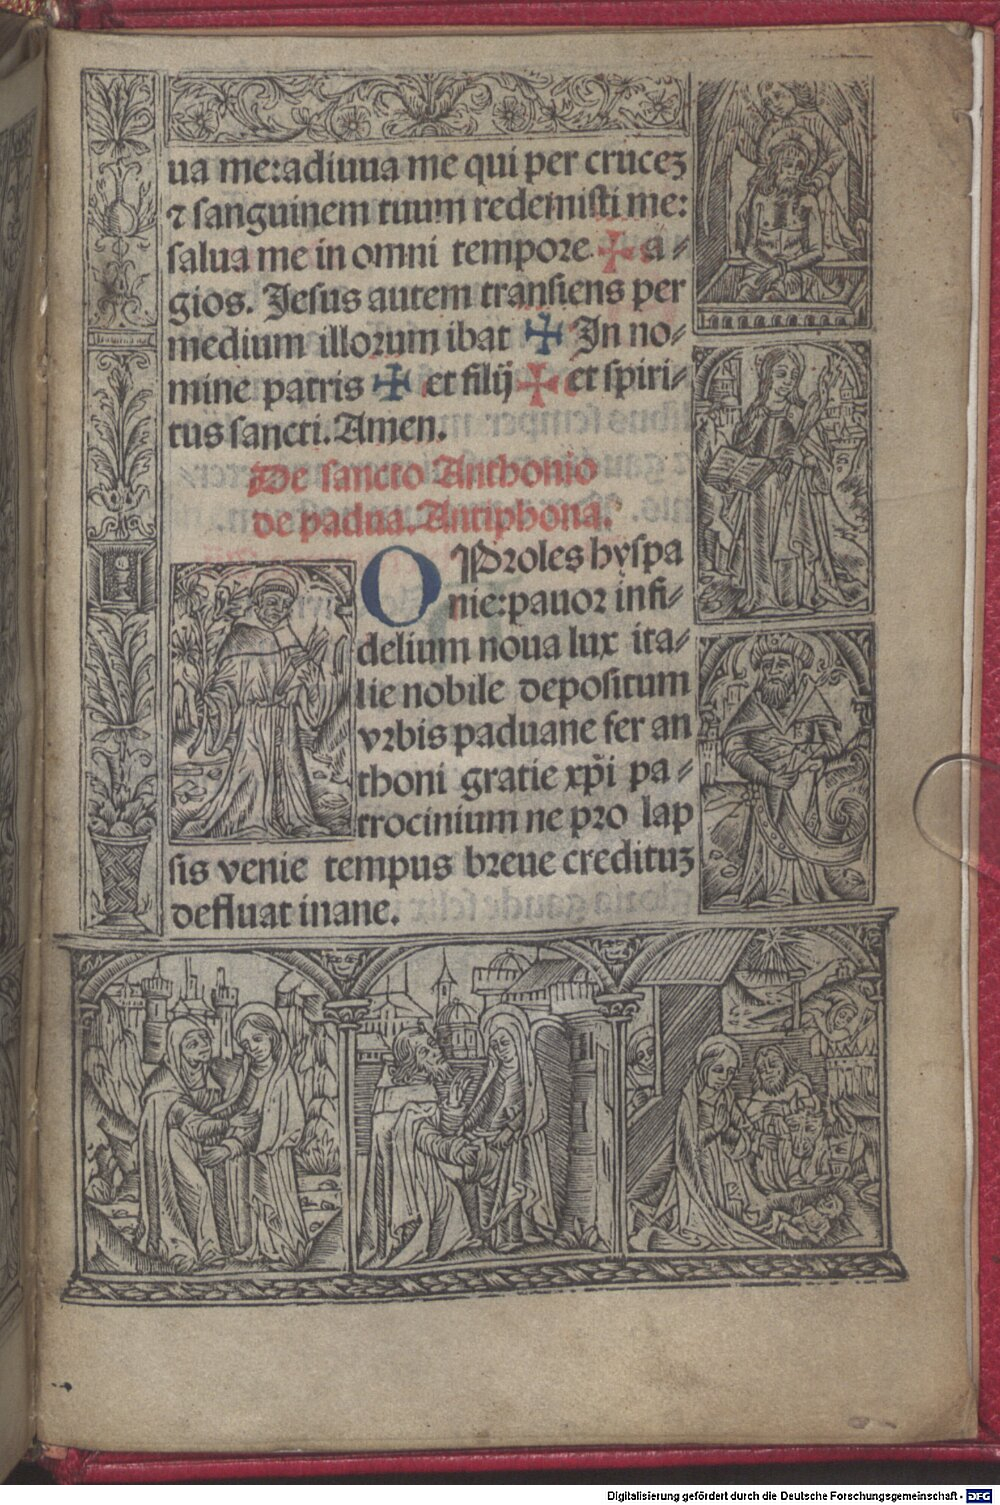 ua me:adiuua me qui per crucez
⁊ sanguinem tuum redemisti me:
salua me in omni tempore ✠ a⸗
gios. Jesus autem transiens per
medium illorum ibat ✠ In no⸗
mine patris ✠ et filij ✠ et spiri⸗
tus sancti. Amen.
De sancto Anthonio
de padua. Antiphona.
O Proles hyspa
nie:pauor infi⸗
delium noua lux ita⸗
lie nobile depositum
vrbis paduane fer an
thoni gratie xp̄i pa⸗
trocinium ne pro lap
sis venie tempus breue credituz
defluat inane.
Digitalisierung gefördert durch die Deutsche Forschungsgemeinschaft - DFG